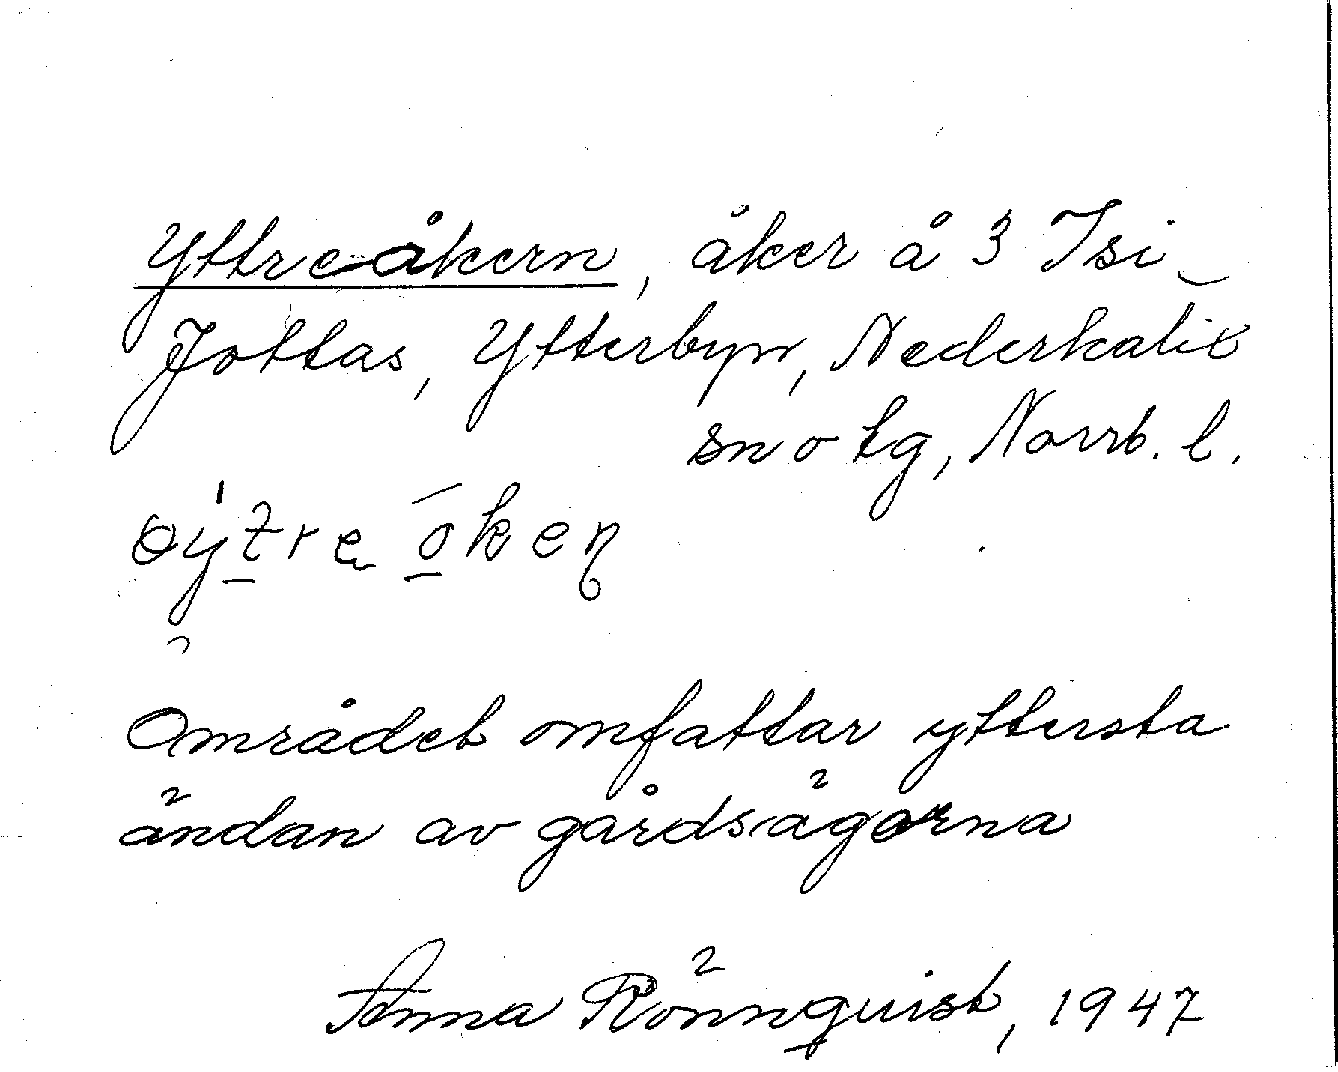 Yttre-åkern, åker å 3 Isi
Jottas, Ytterbyn, Nederkalix
sn o tg, Norrb. l.
Området omfattar yttersta
ändan av gårdsägorna
Anna Rönnquist, 1947